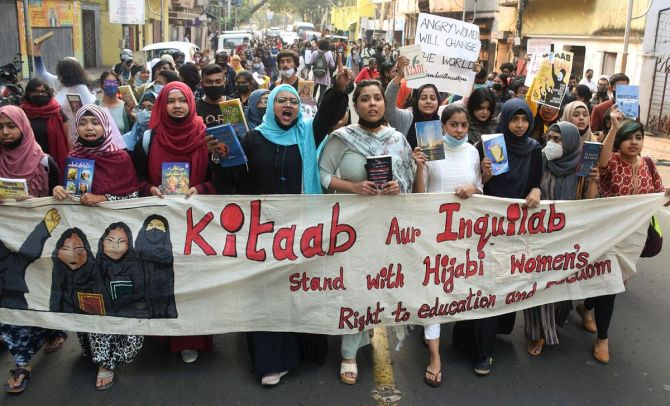 ANGRY WOMEN
WILL CHANGE
THE WORLD
Kitaab Aur Inquilab
Stand with Hijabi Women's
Right to education and Freedom